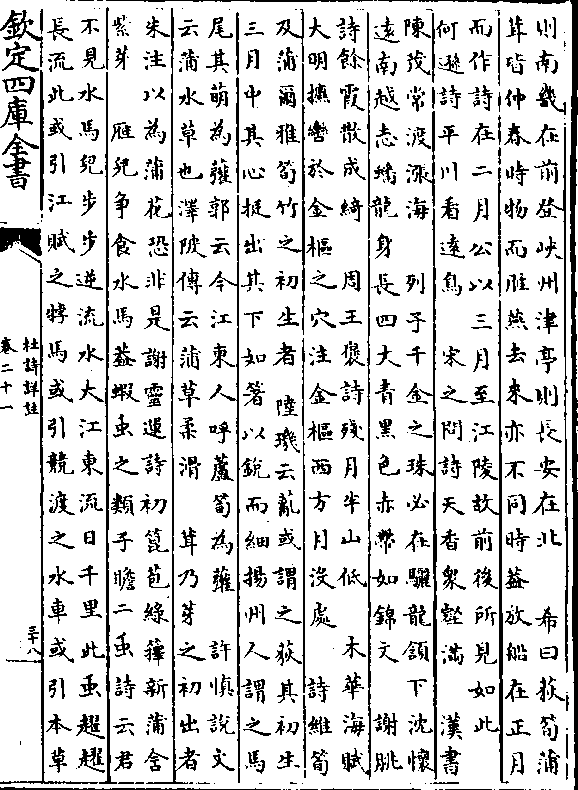 則南畿在前登峽州津亭則長安在北　希曰荻筍蒲
茸皆仲春時物而雁燕去來亦不同時葢放船在正月
而作詩在二月公以三月至江陵故前後所見如此
何遜詩平川看逺鳥　宋之問詩天香衆壑滿　漢書
陳茂常渡漲海　列子千金之珠必在驪龍頷下沈懷
逺南越志蟠龍身長四丈青黑色赤帶如錦文　謝朓
詩餘霞散成綺　周王褒詩殘月半山低　木華海賦
大明㩦轡於金樞之穴注金樞西方月没處　詩維筍
及蒲爾雅筍竹之初生者　陸璣云薍或謂之荻其初生
三月中其心挺出其下如箸以銳而細揚州人謂之馬
尾其萌為虇郭云今江東人呼蘆筍為虇　許慎説文
云蒲水草也澤陂傳云蒲草柔滑　茸乃芽之初出者
朱注以為蒲花恐非是謝靈運詩初篁苞緑籜新蒲含
紫芽　雁兒爭食水馬葢蝦䖝之類子瞻二䖝詩云君
不見水馬兒步步逆流水大江東流日千里此䖝趯趯
長流此或引江賦之㸹馬或引競渡之水車或引本草
欽定四庫全書
杜詩詳註
卷二十一
三十八